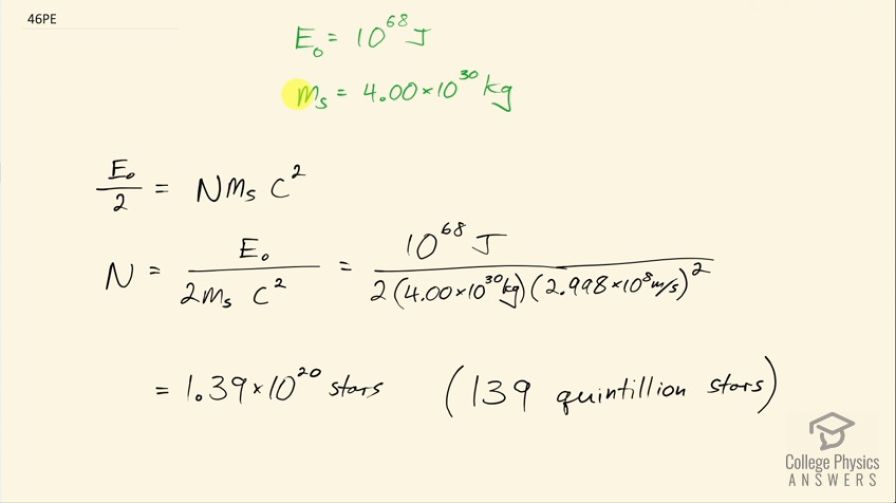 46PE
E₀ = 10⁶⁸ J
mₛ = 4.00×10³⁰ kg
E₀/2 = Nmₛ c²
N = E₀/(2mₛ c²) = 10⁶⁸ J/(2(4.00×10³⁰kg)(2.998×10⁸m/s)²)
= 1.39×10²⁰ stars (139 quintillion stars)
College Physics
ANSWERS